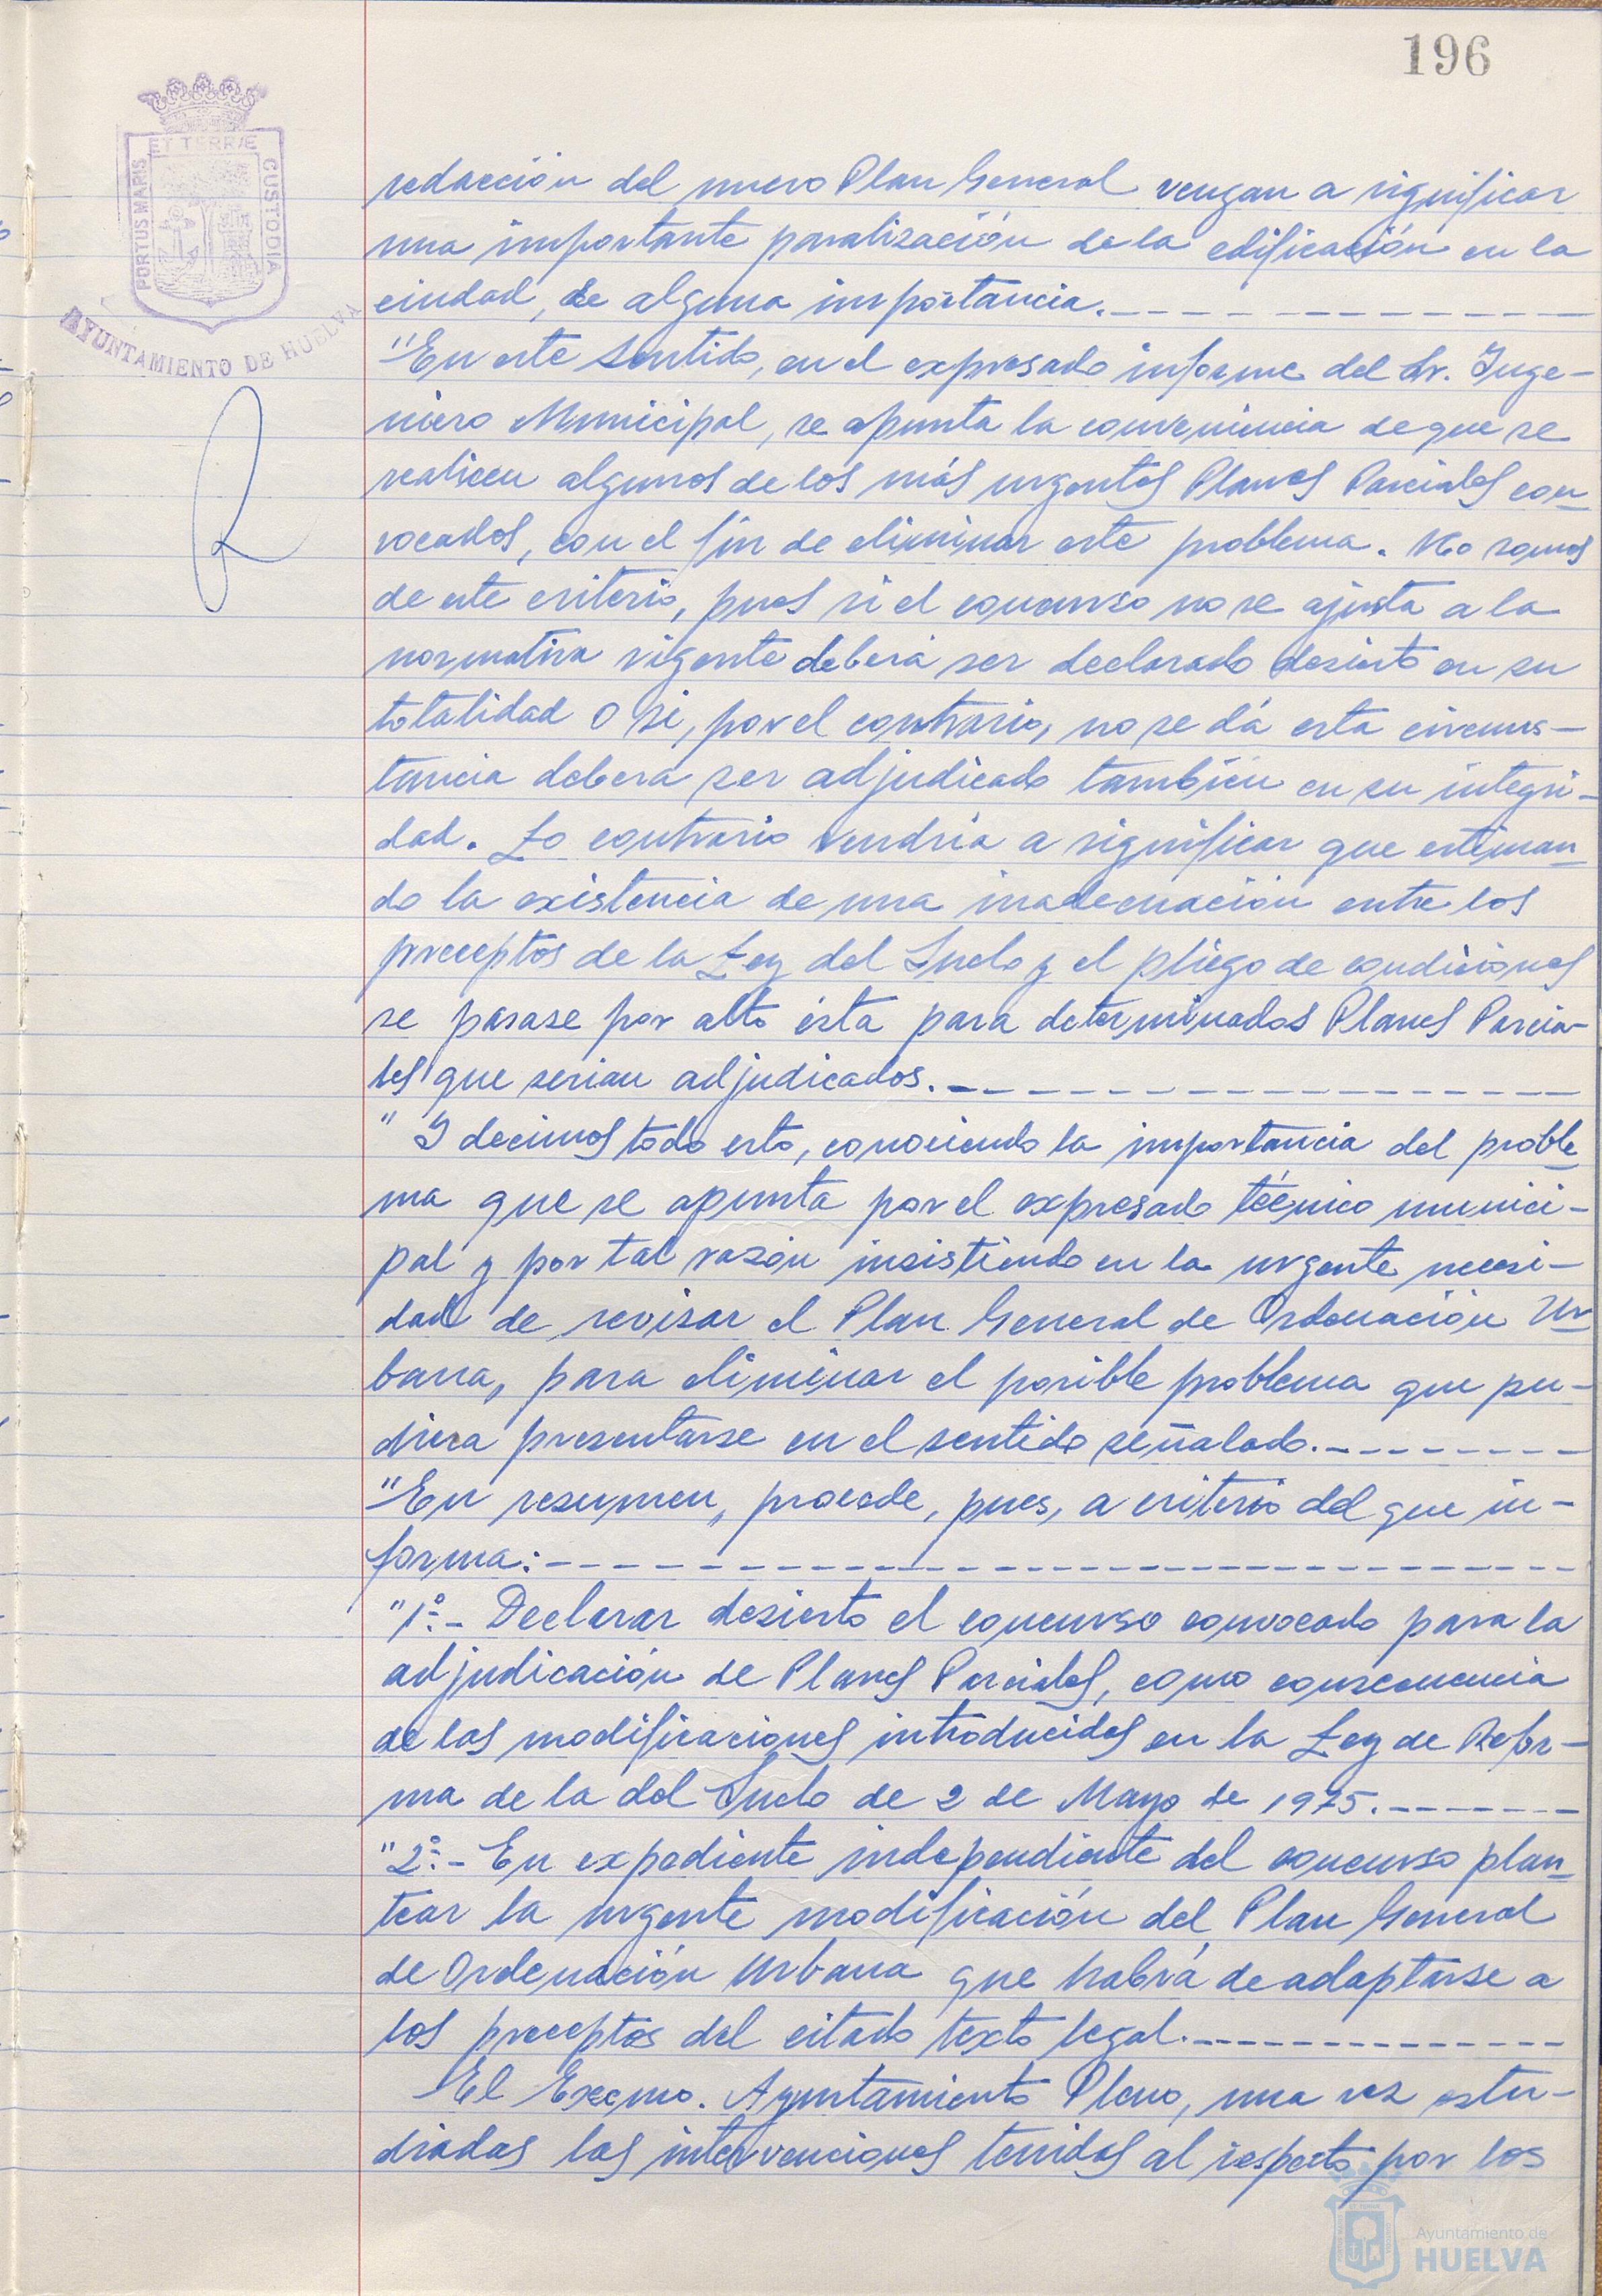 196
ET TERRÆ
PORTUS MARIS
CUSTODIA
AYUNTAMIENTO DE HUELVA
redacción del nuevo Plan General vengan a significar
una importante paralización de la edificación en la
ciudad, de alguna importancia.
"En este sentido, en el expresado informe del Sr. Inge-
niero Municipal, se apunta la conveniencia de que se
realicen algunos de los más urgentes Planes Parciales con-
vocados, con el fin de eliminar este problema. No somos
de este criterio, pues si el concurso no se ajusta a la
normativa vigente deberá ser declarado desierto en su
totalidad o si, por el contrario, no se dá esta circuns-
tancia deberá ser adjudicado también en su integri-
dad. Lo contrario vendría a significar que estiman-
do la existencia de una inadecuación entre los
preceptos de la Ley del Suelo y el pliego de condiciones
se pasase por alto ésta para determinados Planes Parcia-
les que serian adjudicados.
" Y decimos todo esto, conociendo la importancia del proble-
ma que se apunta por el expresado técnico munici-
pal y por tal razón insistiendo en la urgente necesi-
dad de revisar el Plan General de Ordenación Ur-
bana, para eliminar el posible problema que pu-
diera presentarse en el sentido señalado.
"En resumen, procede, pues, a criterio del que in-
forma:
"1º.- Declarar desierto el concurso convocado para la
adjudicación de Planes Parciales, como consecuencia
de las modificaciones introducidas en la Ley de Refor-
ma de la del Suelo de 2 de Mayo de 1975.
"2º.- En expediente independiente del concurso plan-
tear la urgente modificación del Plan General
de Ordenación Urbana que habrá de adaptarse a
los preceptos del citado texto legal.
El Excmo. Ayuntamiento Pleno, una vez estu-
diadas las intervenciones tenidas al respecto por los
Ayuntamiento de
HUELVA